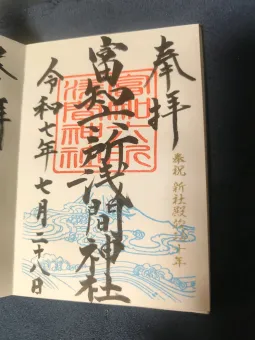 奉拝
奉祝 新社殿 十年
富知六所浅間神社
令和七年 七月二十八日
富知六所
浅間神社
拝